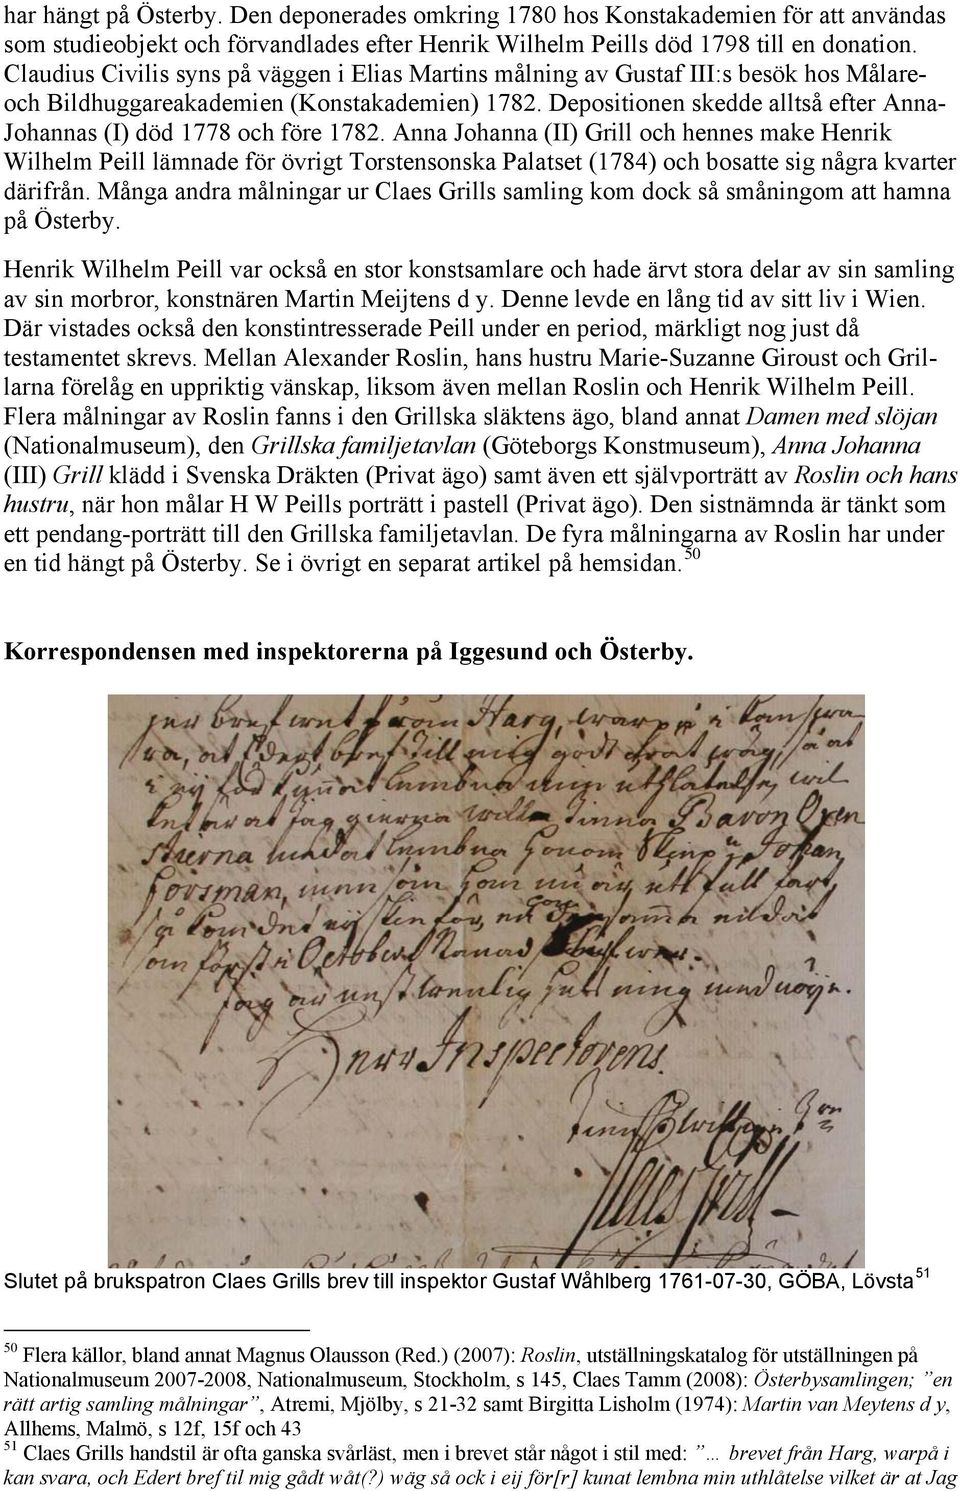 har hängt på Österby. Den deponerades omkring 1780 hos Konstakademien för att användas
som studieobjekt och förvandlades efter Henrik Wilhelm Peills död 1798 till en donation.
Claudius Civilis syns på väggen i Elias Martins målning av Gustaf III:s besök hos Målare-
och Bildhuggareakademien (Konstakademien) 1782. Depositionen skedde alltså efter Anna-
Johannas (I) död 1778 och före 1782. Anna Johanna (II) Grill och hennes make Henrik
Wilhelm Peill lämnade för övrigt Torstensonska Palatset (1784) och bosatte sig några kvarter
därifrån. Många andra målningar ur Claes Grills samling kom dock så småningom att hamna
på Österby.
Henrik Wilhelm Peill var också en stor konstsamlare och hade ärvt stora delar av sin samling
av sin morbror, konstnären Martin Meijtens d y. Denne levde en lång tid av sitt liv i Wien.
Där vistades också den konstintresserade Peill under en period, märkligt nog just då
testamentet skrevs. Mellan Alexander Roslin, hans hustru Marie-Suzanne Giroust och Gril-
larna förelåg en uppriktig vänskap, liksom även mellan Roslin och Henrik Wilhelm Peill.
Flera målningar av Roslin fanns i den Grillska släktens ägo, bland annat Damen med slöjan
(Nationalmuseum), den Grillska familjetavlan (Göteborgs Konstmuseum), Anna Johanna
(III) Grill klädd i Svenska Dräkten (Privat ägo) samt även ett självporträtt av Roslin och hans
hustru, när hon målar H W Peills porträtt i pastell (Privat ägo). Den sistnämnda är tänkt som
ett pendang-porträtt till den Grillska familjetavlan. De fyra målningarna av Roslin har under
en tid hängt på Österby. Se i övrigt en separat artikel på hemsidan.50
Korrespondensen med inspektorerna på Iggesund och Österby.
bref från Harg, warpå i kan swa
ra, at Edert bref till mig godt wäg, så at
i eij för kunnat lembna min uthlåtelse, wil
ket är at Jag gierna Baron Oxen
stierna lembna honom Johan
Horsman, men som han nu är
så kan det eij
som först i October
Jag är
Herr Inspectorens
Claes Grill
Slutet på brukspatron Claes Grills brev till inspektor Gustaf Wåhlberg 1761-07-30, GÖBA, Lövsta51
50 Flera källor, bland annat Magnus Olausson (Red.) (2007): Roslin, utställningskatalog för utställningen på
Nationalmuseum 2007-2008, Nationalmuseum, Stockholm, s 145, Claes Tamm (2008): Österbysamlingen; ”en
rätt artig samling målningar”, Atremi, Mjölby, s 21-32 samt Birgitta Lisholm (1974): Martin van Meytens d y,
Allhems, Malmö, s 12f, 15f och 43
51 Claes Grills handstil är ofta ganska svårläst, men i brevet står något i stil med: ”… brevet från Harg, warpå i
kan svara, och Edert bref til mig gådt wåt(?) wäg så ock i eij för[r] kunat lembna min uthlåtelse vilket är at Jag